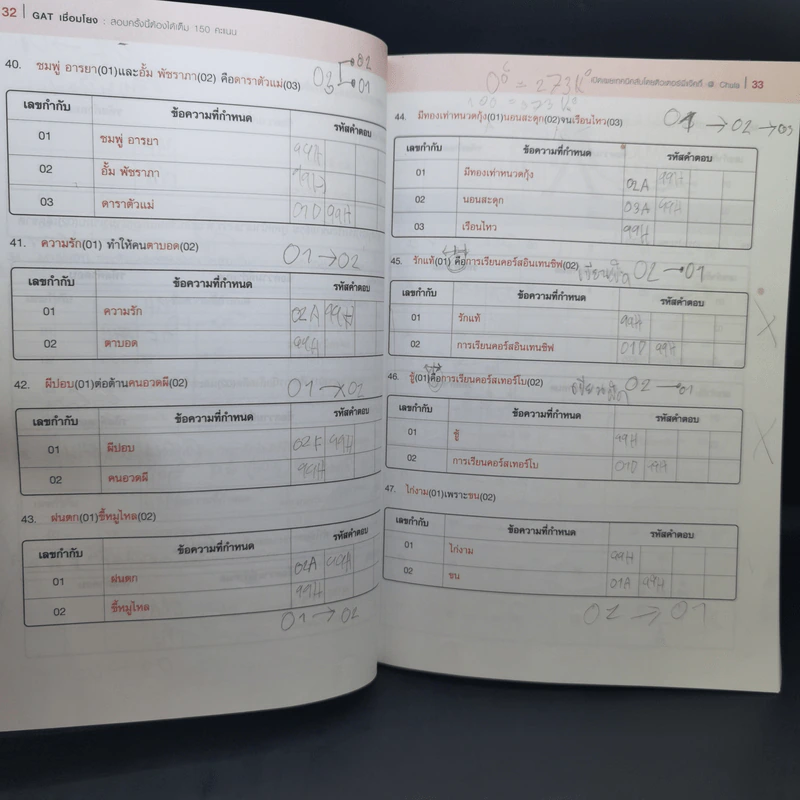 32 | GAT เชื่อมโยง : สอบครั้งนี้ต้องได้เต็ม 150 คะแนน
40. ชมพู่ อารยา(01)และอั้ม พัชราภา(02) คือดาราตัวแม่(03)
03 02
01
เลขกำกับ ข้อความที่กำหนด รหัสคำตอบ
01 ชมพู่ อารยา 99H
02 อั้ม พัชราภา 99H
03 ดาราตัวแม่ 01D 99H
41. ความรัก(01) ทำให้คนตาบอด(02) 01→02
เลขกำกับ ข้อความที่กำหนด รหัสคำตอบ
01 ความรัก 02A 99H
02 ตาบอด 99H
42. ผีปอบ(01)ต่อต้านคนอวดผี(02) 01→x02
เลขกำกับ ข้อความที่กำหนด รหัสคำตอบ
01 ผีปอบ 02F 99H
02 คนอวดผี 99H
43. ฝนตก(01)ขี้หมูไหล(02)
เลขกำกับ ข้อความที่กำหนด รหัสคำตอบ
01 ฝนตก 02A 99H
02 ขี้หมูไหล 99H
01→02
Chula | 33
0°C = 273K°
100 = 373K°
44. มีทองเท่าหนวดกุ้ง(01)นอนสะดุ้ง(02)จนเรือนไหว(03) 01→02→03
เลขกำกับ ข้อความที่กำหนด รหัสคำตอบ
01 มีทองเท่าหนวดกุ้ง 02A 99H
02 นอนสะดุ้ง 03A 99H
03 เรือนไหว 99H
45. รักแท้(01) คือการเรียนคอร์สอินเทนซิฟ(02) เขียนผิด 02→01
เลขกำกับ ข้อความที่กำหนด รหัสคำตอบ
01 รักแท้ 99H
02 การเรียนคอร์สอินเทนซิฟ 01D 99H
46. ชู้(01)คือการเรียนคอร์สเทอร์โบ(02) เขียนผิด 02→01
เลขกำกับ ข้อความที่กำหนด รหัสคำตอบ
01 ชู้ 99H
02 การเรียนคอร์สเทอร์โบ 01D 99H
47. ไก่งาม(01)เพราะขน(02)
เลขกำกับ ข้อความที่กำหนด รหัสคำตอบ
01 ไก่งาม 99H
02 ขน 01A 99H
02→01